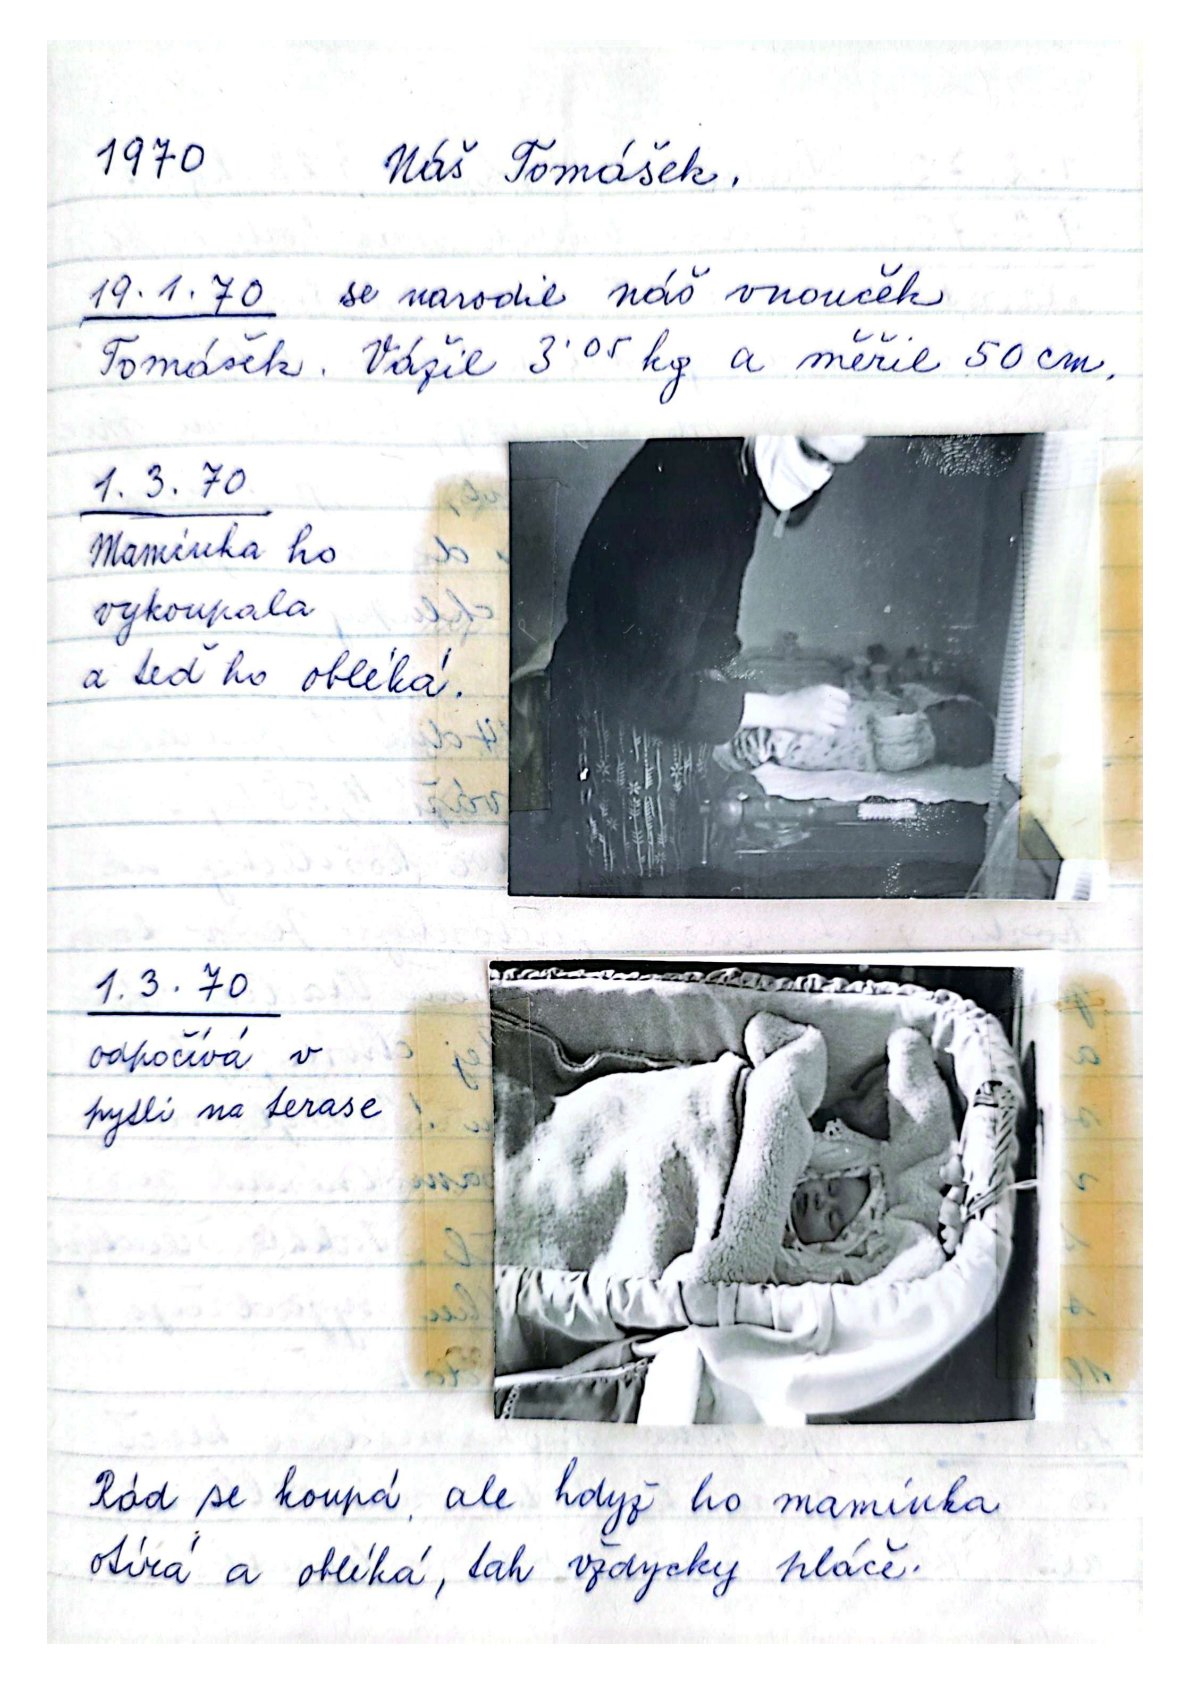 1970 Náš Tomášek.
19.1.70 se narodil náš vnouček
Tomášek. Vážil 3˙05 kg a měřil 50 cm.
1.3.70
Maminka ho
vykoupala
a teď ho obléká.
1.3.70
odpočívá v
pytli na terase
Rád se koupá, ale když ho maminka
otírá a obléká, tak vždycky pláče.